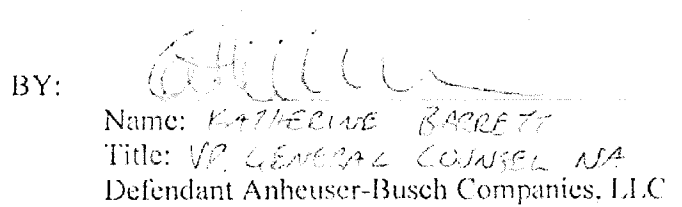 BY:
Name: KATHERINE BARRETT
Title: VP, GENERAL COUNSEL NA
Defendant Anheuser-Busch Companies, LLC